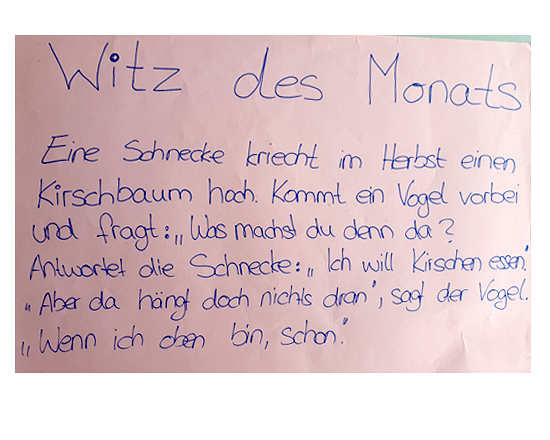 Witz des Monats
Eine Schnecke kriecht im Herbst einen
Kirschbaum hoch. Kommt ein Vogel vorbei
und fragt: „Was machst du denn da?
Antwortet die Schnecke: „Ich will Kirschen essen."
„Aber da hängt doch nichts dran", sagt der Vogel.
„Wenn ich oben bin, schon."